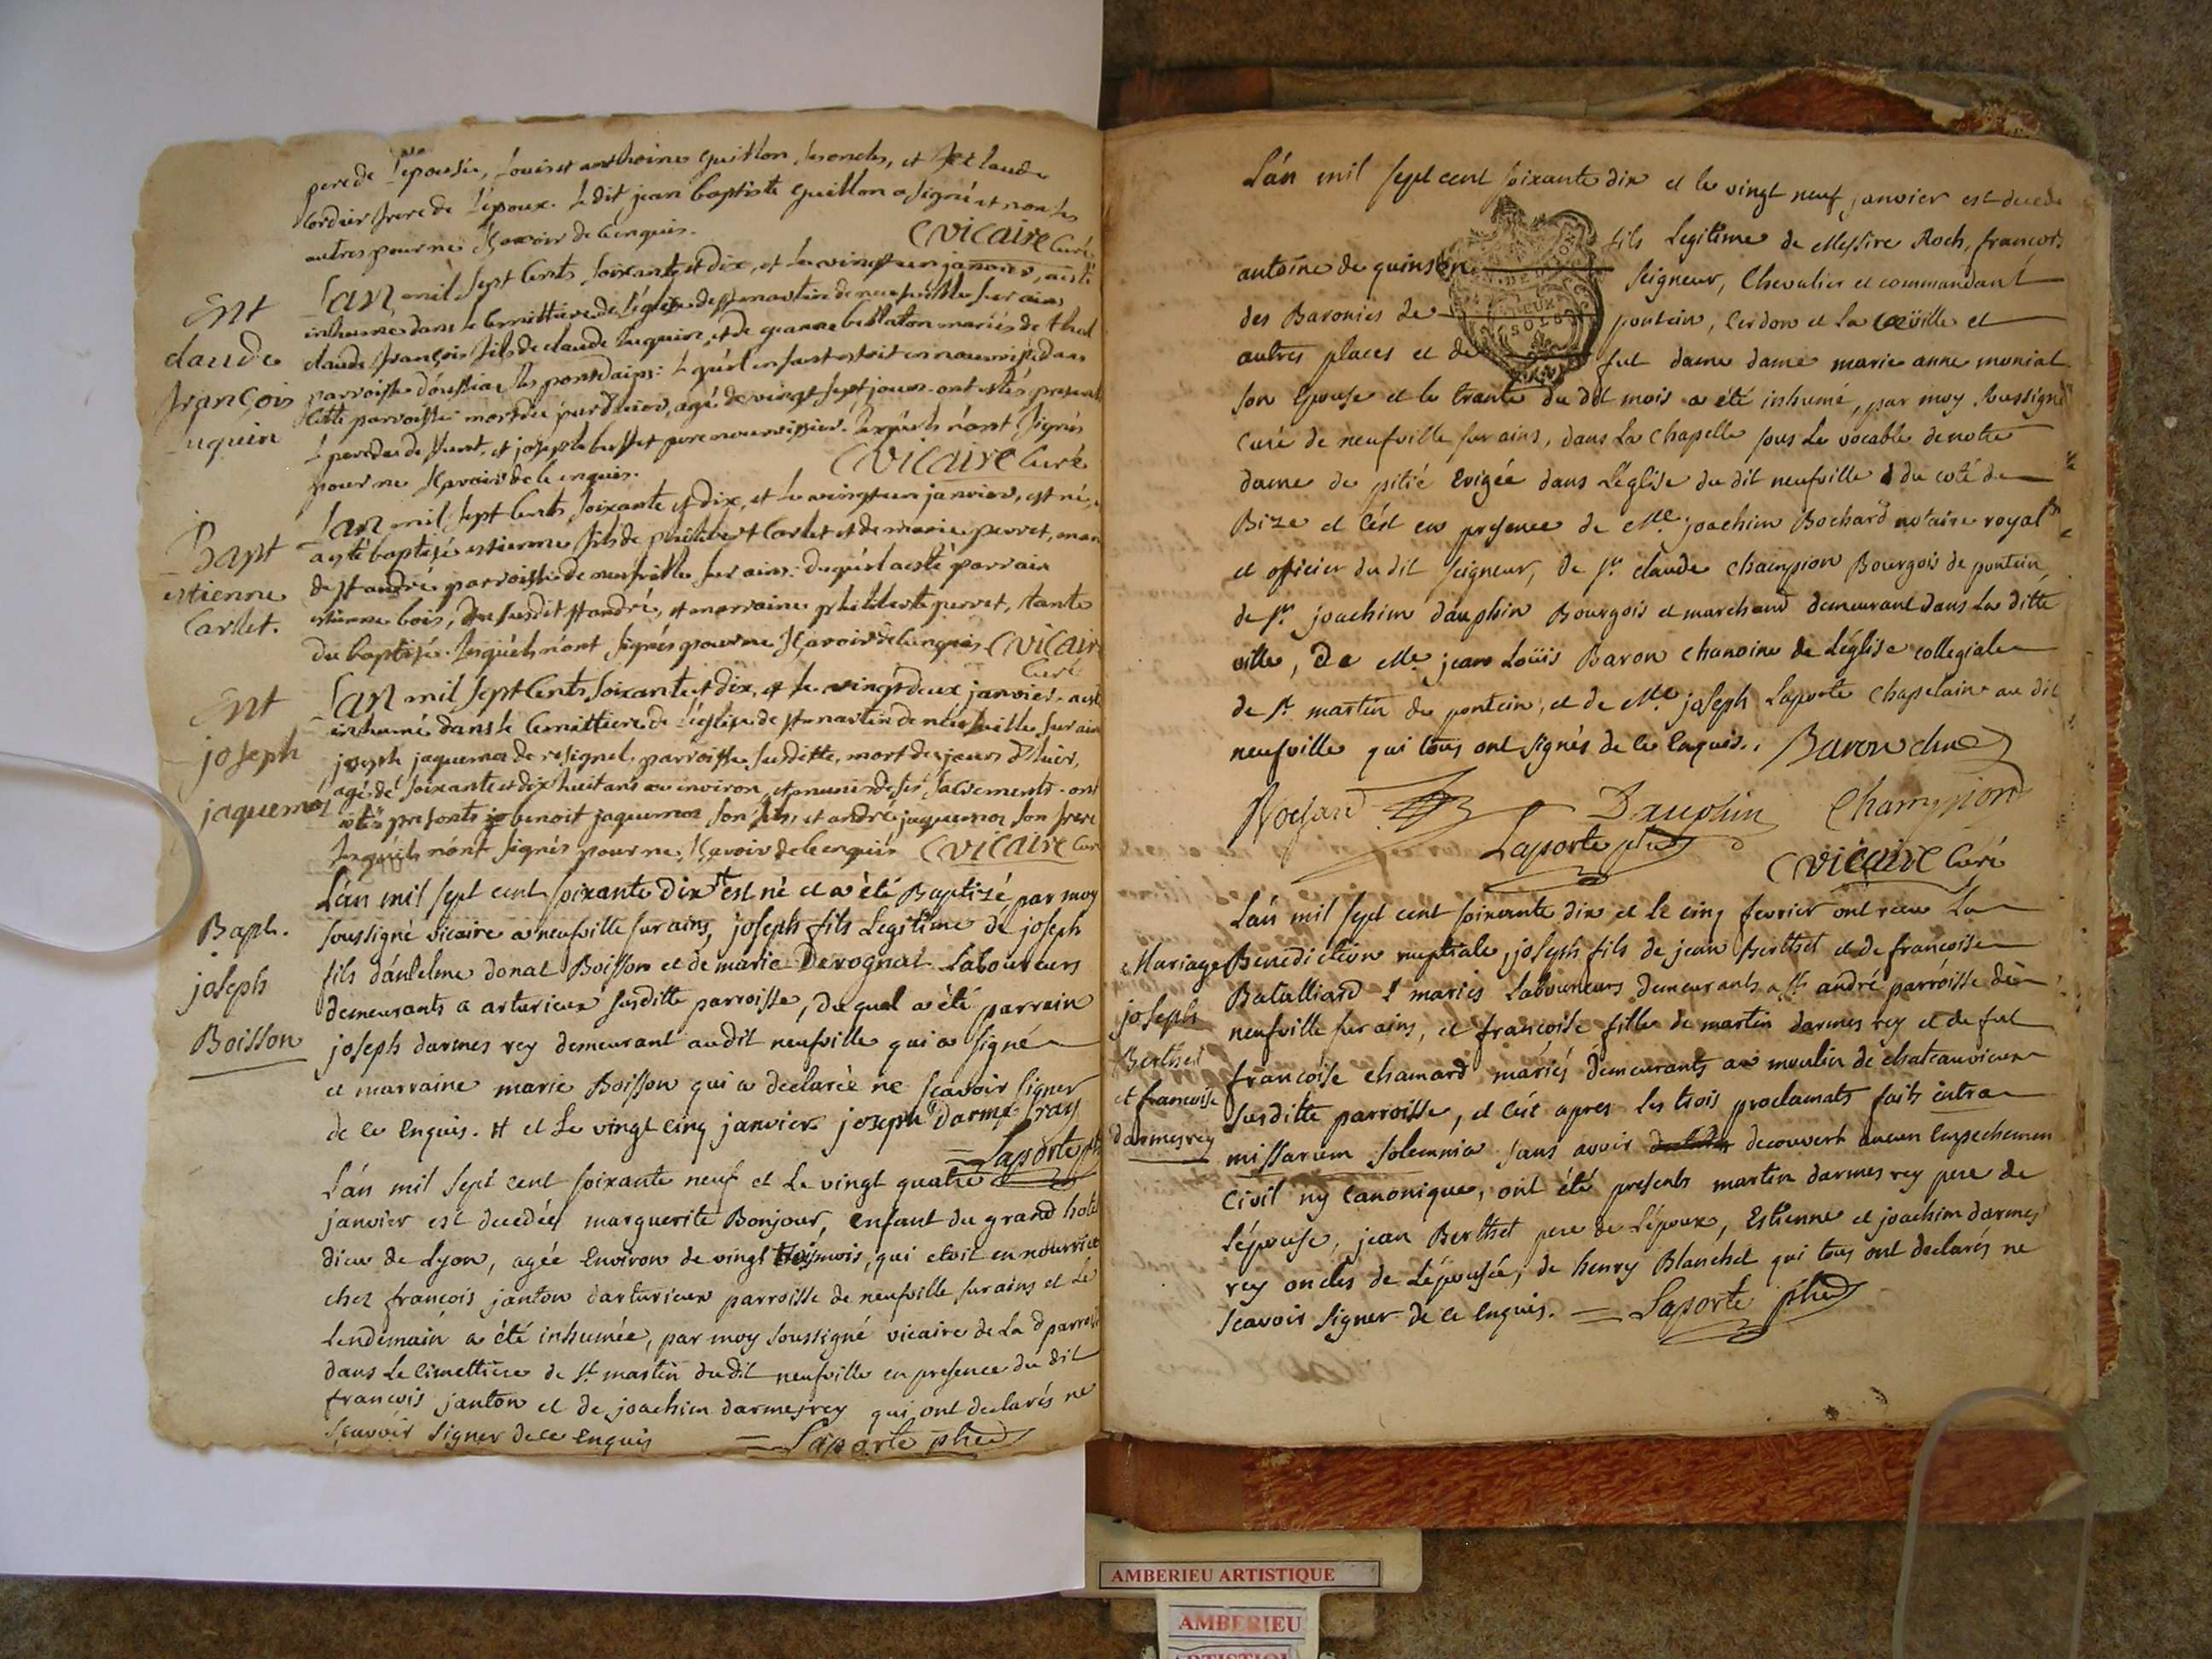 pere de l'epousée, Louis et anthoine guillon, ses oncles, et claude
Cordier frere de l'époux. Le dit jean baptiste guillon a signé et non les
autres pour ne sçavoir de ce enquis. Cvicaire Curé
Ent
claude
françois
uguin
L'an mil sept cents soixante et dix, et le vingt un janvier, a esté
inhumé dans le cemittiere de l'église de st martin de neufville sur ains
claude françois fils de claude huguin, et de jeanne mariés de
parroisse
cette parroisse mort du jour d'hier, agé de vingt sept jours. ont estés presents
le pere du deffunt, et joseph pere nourrissier. lesquels n'ont signés
pour ne sçavoir de ce enquis. Cvicaire Curé
Bapt
estienne
Carlet.
L'an mil sept cents soixante et dix, et le vingt un janvier, est né,
a esté baptisé estienne fils de philibert Carlet et de marie perret,
de st andré parroisse de neufville sur ains: duquel a esté parrain
estienne bois, du susdit st andré, et marraine philiberte perret, tante
du baptisé. lesquels n'ont signés pour ne sçavoir de ce enquis Cvicaire
Curé
Ent
joseph
jaquemoz
L'an mil sept cents soixante et dix, et le vingt deux janvier. a esté
inhumé dans le cemittiere de l'église de st martin de neufville sur ains
joseph jaquemoz de resignel parroisse susditte, mort du jour d'hier,
agé de soixante et dix huit ans ou environ, et muni de ses sacrements. ont
estés presents benoit jaquemoz son fils, et andré jaquemoz son frere
lesquels n'ont signés pour ne sçavoir de ce enquis Cvicaire Cur
Bapt.
joseph
Boisson
L'an mil sept cent soixante dix # est né et a été Baptizé par moy
soussigné vicaire a neufville sur ains, joseph fils Legitime de joseph
fils d'antelme donat Boisson et de marie Derognat Laboureurs
demeurants a arturieux susditte parroisse, duquel a été parrain
joseph darmes rey demeurant audit neufville qui a signé
et marraine marie Boisson qui a declarée ne sçavoir signer
de ce enquis. # et Le vingt cinq janvier. joseph Darme Ray
= Laporte ptre
L'an mil sept cent soixante neuf et Le vingt quatre
janvier est decedée marguerite Bonjour, enfant du grand hotel
dieu de Lyon, agée Environ de vingt trois mois, qui etoit en nourrice
chez francois janton d'arturieux parroisse de neufville sur ains et Le
Lendemain a été inhumée, par moy soussigné vicaire de La d parroisse
dans Le cimettiere de st martin dudit neufville en presence du dit
francois janton et de joachim darmes rey qui ont declarés ne
sçavoir signer de ce enquis = Laporte ptre
L'an mil sept cent soixante dix et le vingt neuf janvier est decedé
antoine de quinson fils Legitime de Messire Roch, francois
Seigneur, Chevalier et commandant
des Baronies de pontein, Cerdon et La Cueille et
autres places et de fut dame dame marie anne muniat
son Epouse et le trante du dit mois a été inhumé, par moy soussigné
Curé de neufville sur ains, dans La Chapelle sous Le vocable de notre
dame de pitié Erigée dans L'église du dit neufville du coté de
Bize et c'est en presence de Me joachim Bochard notaire royal
et officier du dit seigneur, de sr claude champion Bourgois de pontein,
de sr joachim dauphin Bourgois et marchand demeurant dans La ditte
ville, De Me jean Loüis Baron chanoine de L'église collegiale
de st martin de pontein, et de Me joseph Laporte Chapelain au dit
neufville qui tous ont signés de ce Enquis. Baron chne
Bochard Dauphin Champion
Laporte ptre
Cvicaire Curé
Mariage
joseph
Berthet
et francoise
darmes rey
L'an mil sept cent soixante dix et le cinq fevrier ont recu La
Benediction nuptiale, joseph fils de jean Berthet et de francoise
Batalliard mariés Laboureurs demeurants a st andré parroisse de
neufville sur ains, et francoise fille de martin darmes rey et de fut
francoise chamard mariés demeurants au moulin de chateauvieux
susditte parroisse, et c'est apres Les trois proclamats faits intra
missarum solemnia sans avoir decouvert aucun Empechemen
Civil ny Canonique, ont été presents martin darmes rey pere de
L'épouse, jean Berthet pere de L'époux, Estienne et joachim darmes
rey oncles de L'épousée, de henry Blanchet qui tous ont declarés ne
scavoir signer de ce Enquis. = Laporte ptre
AMBERIEU ARTISTIQUE
AMBERIEU
ARTISTIQUE